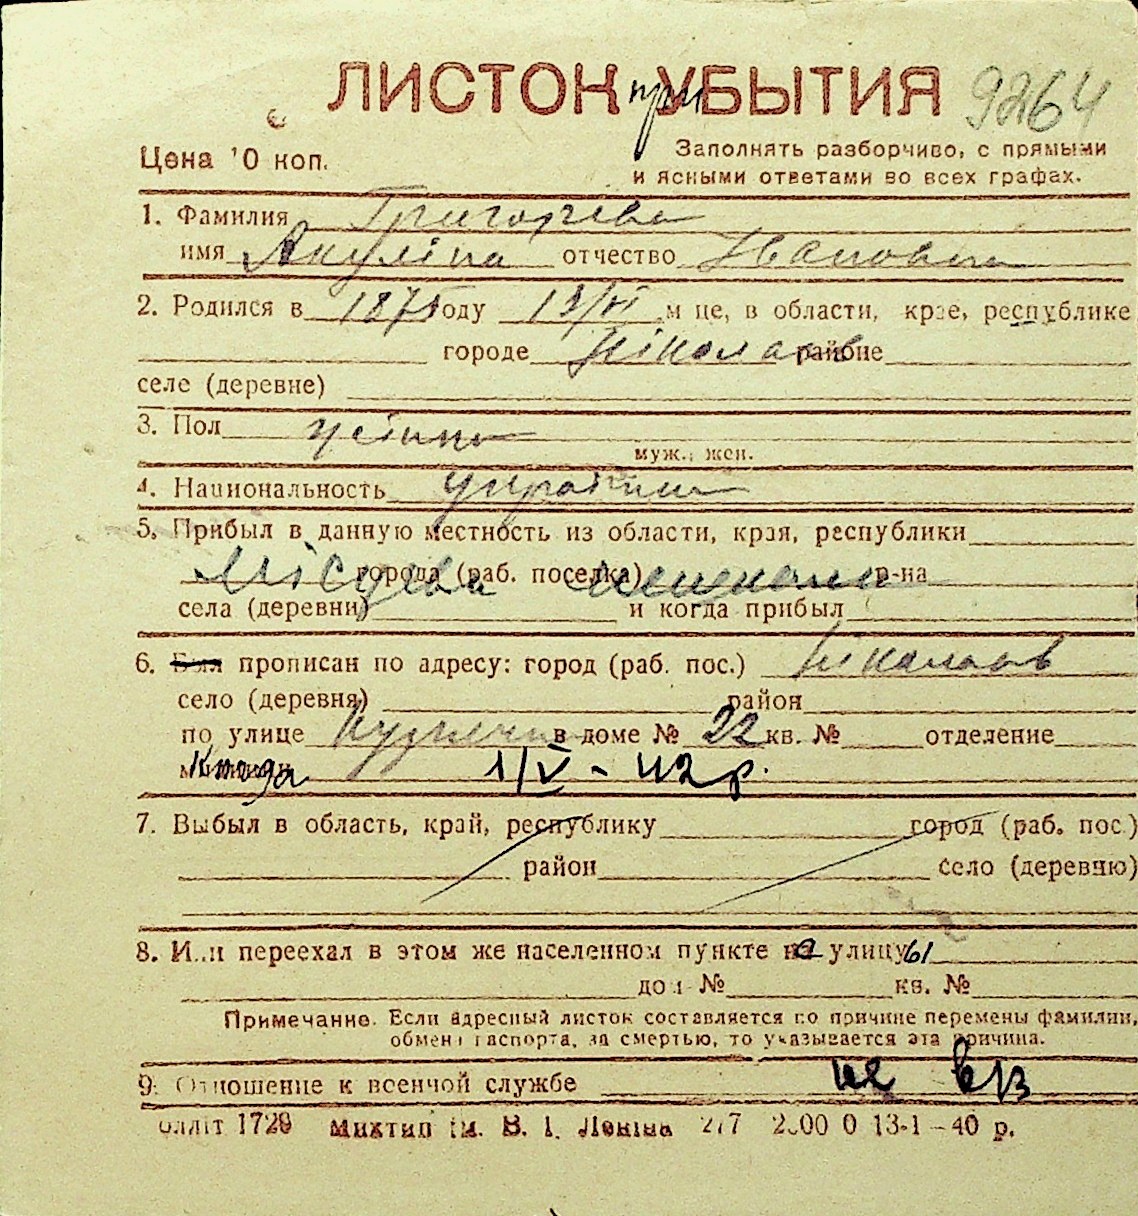 ЛИСТОК при УБЫТИЯ 9264
Цена 10 коп.
Заполнять разборчиво, с прямыми
и ясными ответами во всех графах.
1. Фамилия Григорьева
имя Акуліна отчество Ивановна
2. Родился в 1875 году 13/VI м-це, в области, крае, республике
городе Ніколаєв районе
селе (деревне)
3. Пол
муж., жен.
4. Национальность
5. Прибыл в данную местность из области, края, республики
Місцева города (раб. поселка) мешканка р-на
села (деревни) и когда прибыл
6. Был прописан по адресу: город (раб. пос.) Ніколаєв
село (деревня) район
по улице в доме № 22 кв. № отделение
милиции Когда 1/V - 42 р.
7. Выбыл в область, край, республику город (раб. пос.)
район село (деревню)
8. Или переехал в этом же населенном пункте с улицы
дом № кв. №
Примечание. Если адресный листок составляется по причине перемены фамилии,
обмена паспорта, за смертью, то указывается эта причина.
9. Отношение к военной службе не в/з
облліт 1729 Миктип ім. В. І. Леніна 277 13-1-40 р.